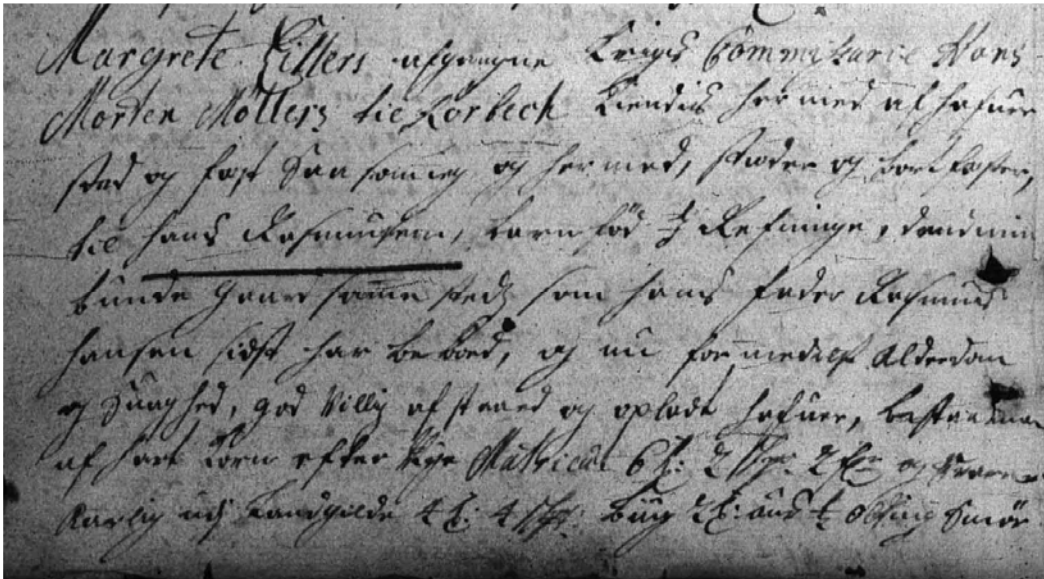 Margrete Eillers afgangne Krigs Commissarie Hans
Morten Møllers til Lorbech Kiendis hermed at hafuer
sted og fæst Saa som ieg og hermed, steder og bort fæster,
til Hans Rasmusen, barnfød i Refninge, dend min
bunde Gaard samme steds som hans fader Rasmus
Hansen sidst har beboed, og nu formedelst Alderdom
og Suaghed, god Villig afstaaed og opladt hafuer, bestaaende
af hart Korn efter Nye Matricul 6 t: 2 Skp: 2 f: og Suarer
Aarlig udj Landgilde 4 t: 4 Skp: biug 2 t: Smør